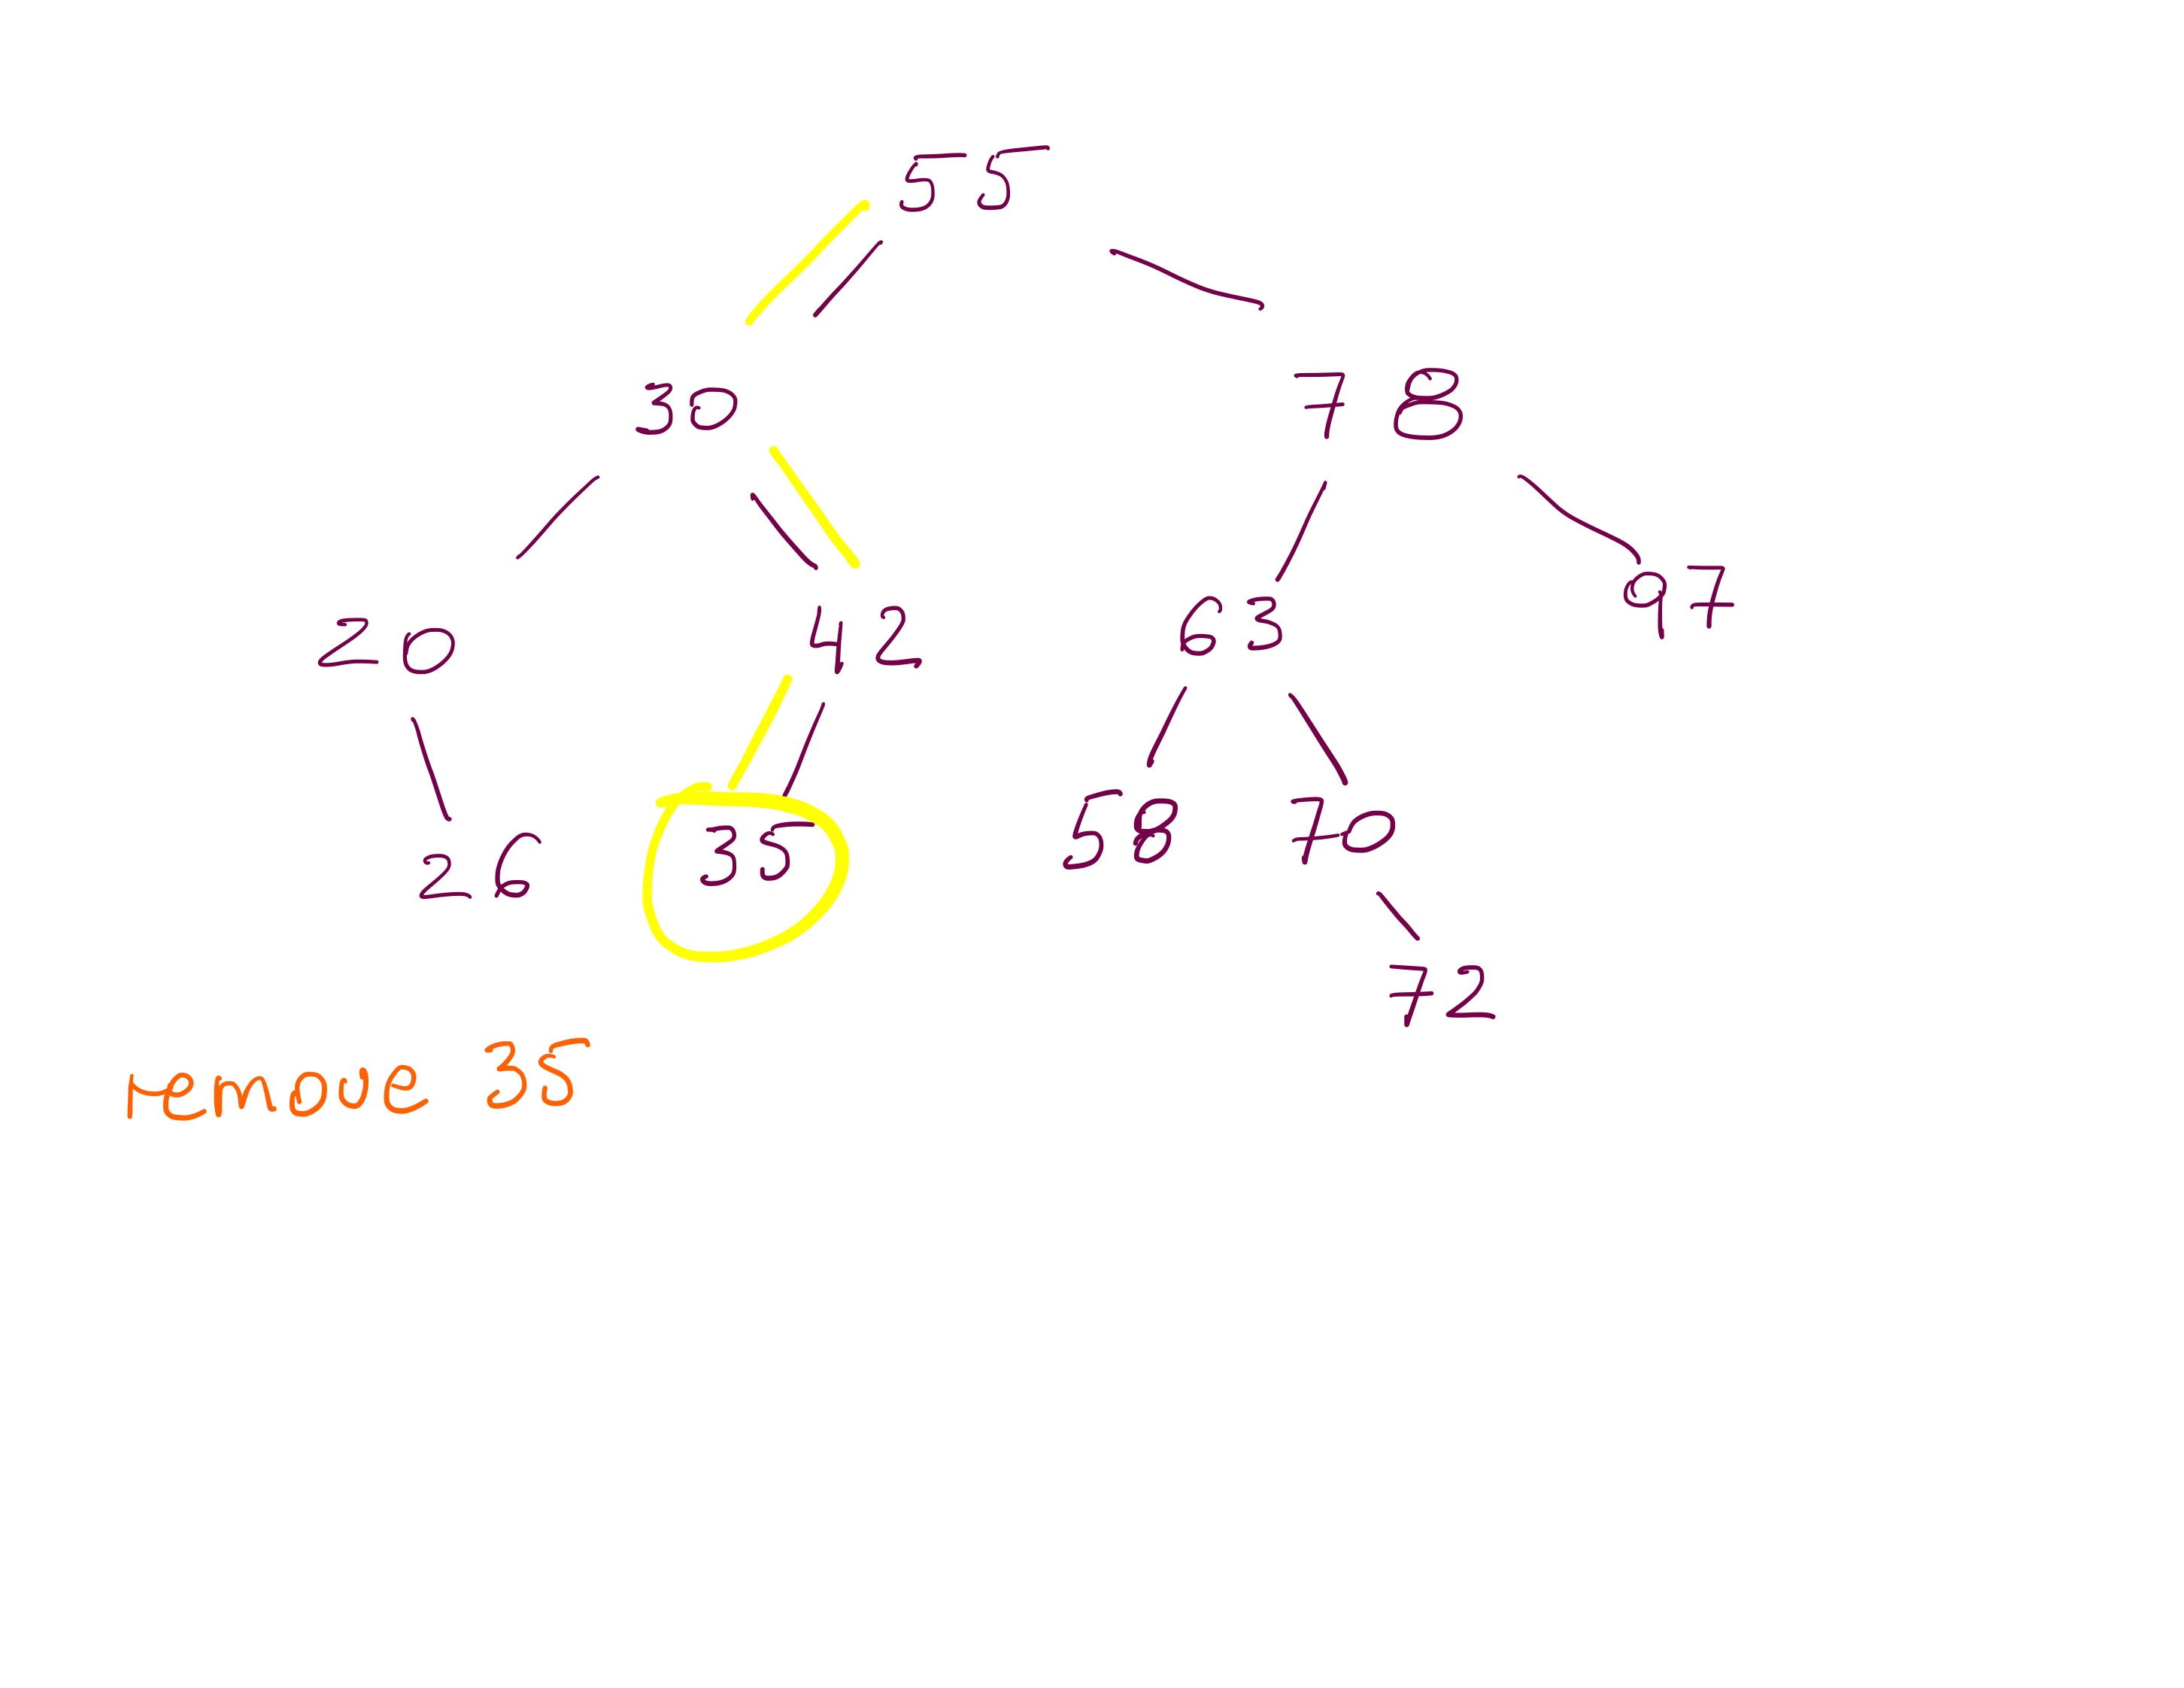 55
30 78
20 42 63 97
26 35 58 70
72
remove 35